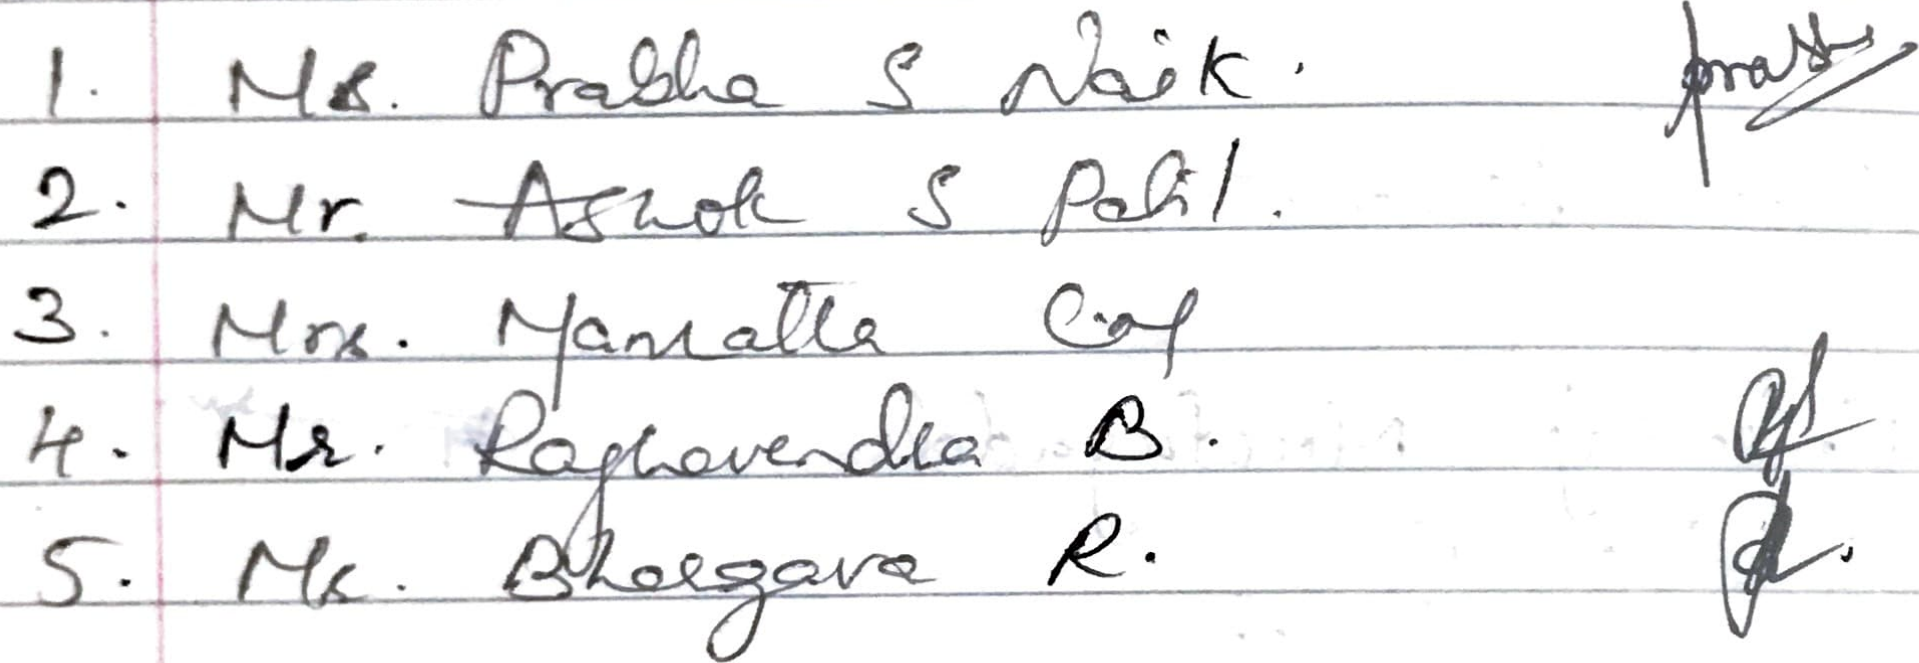 1. Ms. Prabha S Naik.
2. Mr. Ashok S Patil.
3. Mrs. Mamatha
4. Mr. Raghavendra B.
5. Mr. Bhargava R.